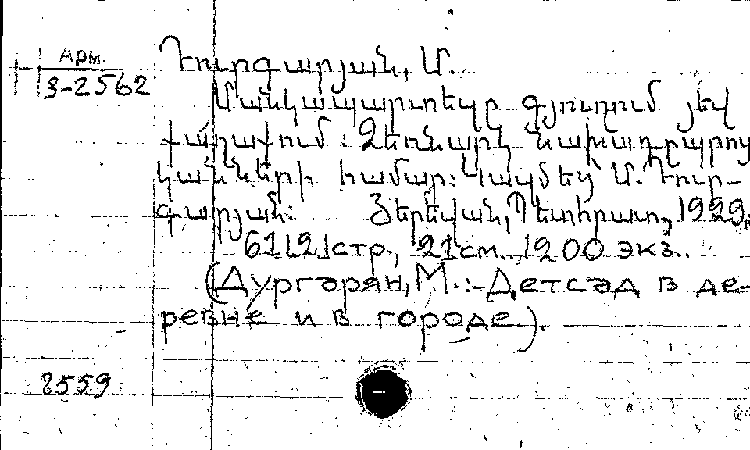 Арм.
3-2562
Դուրգարյան, Մ.
Մանկապարտեզը գյուղում յեվ
քաղաքում: Ձեռնարկ նախադպրոց
կանների համար: Կազմեց Մ. Դուր-
գարյան: Յերեվան, Պետհրատ, 1929,
61[2] стр., 21 см., 1200 экз.
(Дургарян, М.:-Детсад в де-
ревне и в городе).
2559